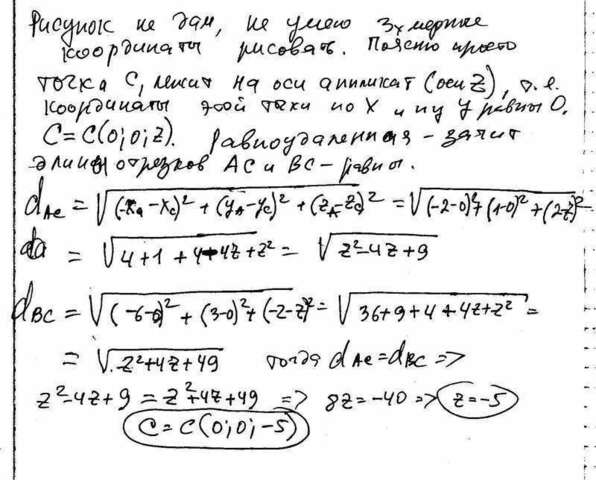 Рисунок не дам, не умею 3х мерные
координаты рисовать. Поясню просто
точка C, лежит на оси аппликат (оси Z), т.е.
координаты этой точки по X и по У равны 0.
C = C(0; 0; z). Равноудаленная - значит
длины отрезков AC и BC - равны.
d_AC = √((x_A - x_C)² + (y_A - y_C)² + (z_A - z_C)²) = √((-2-0)² + (1-0)² + (2-z)²
= √(4 + 1 + 4 - 4z + z²) = √(z² - 4z + 9)
d_BC = √((-6-0)² + (3-0)² + (-2-z)²) = √(36 + 9 + 4 + 4z + z²) =
= √(z² + 4z + 49) тогда d_AC = d_BC =>
z² - 4z + 9 = z² + 4z + 49 => 8z = -40 => z = -5
C = C(0; 0; -5)